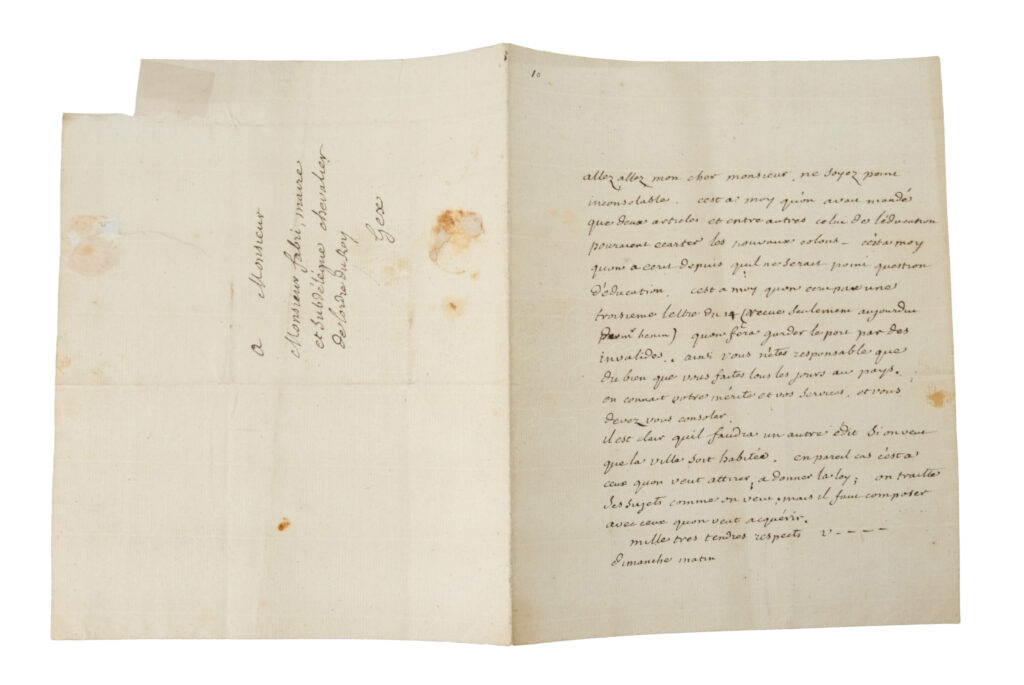 a Monsieur
Monsieur fabri, maire
et subdélégué chevalier
de lordre du Roy
Gex
10
allez allez mon cher monsieur, ne soyez point
inconsolable. cest a moy qu'on avait mandé
que deux articles et entre autres celui de l'éducation
pouraient ecarter les nouvaux colons – c'est a moy
quon a ecrit depuis quil ne serait point question
d'éducation. c'est a moy quon ecrit par une
troisieme lettre du 14 (recue seulement aujourdui
par mr henin) quon fera garder le port par des
invalides. ainsi vous n'etes responsable que
du bien que vous faites tous les jours au pays.
on connait votre mérite et vos services, et vous
devez vous consoler.
il est clair quil faudra un autre édit si on veut
que la ville soit habitée. en pareil cas c'est a
ceux quon veut attirer, a donner la loy; on traitte
ses sujets comme on veut, mais il faut composer
avec ceux quon veut acquérir.
mille tres tendres respects V - - - -
dimanche matin